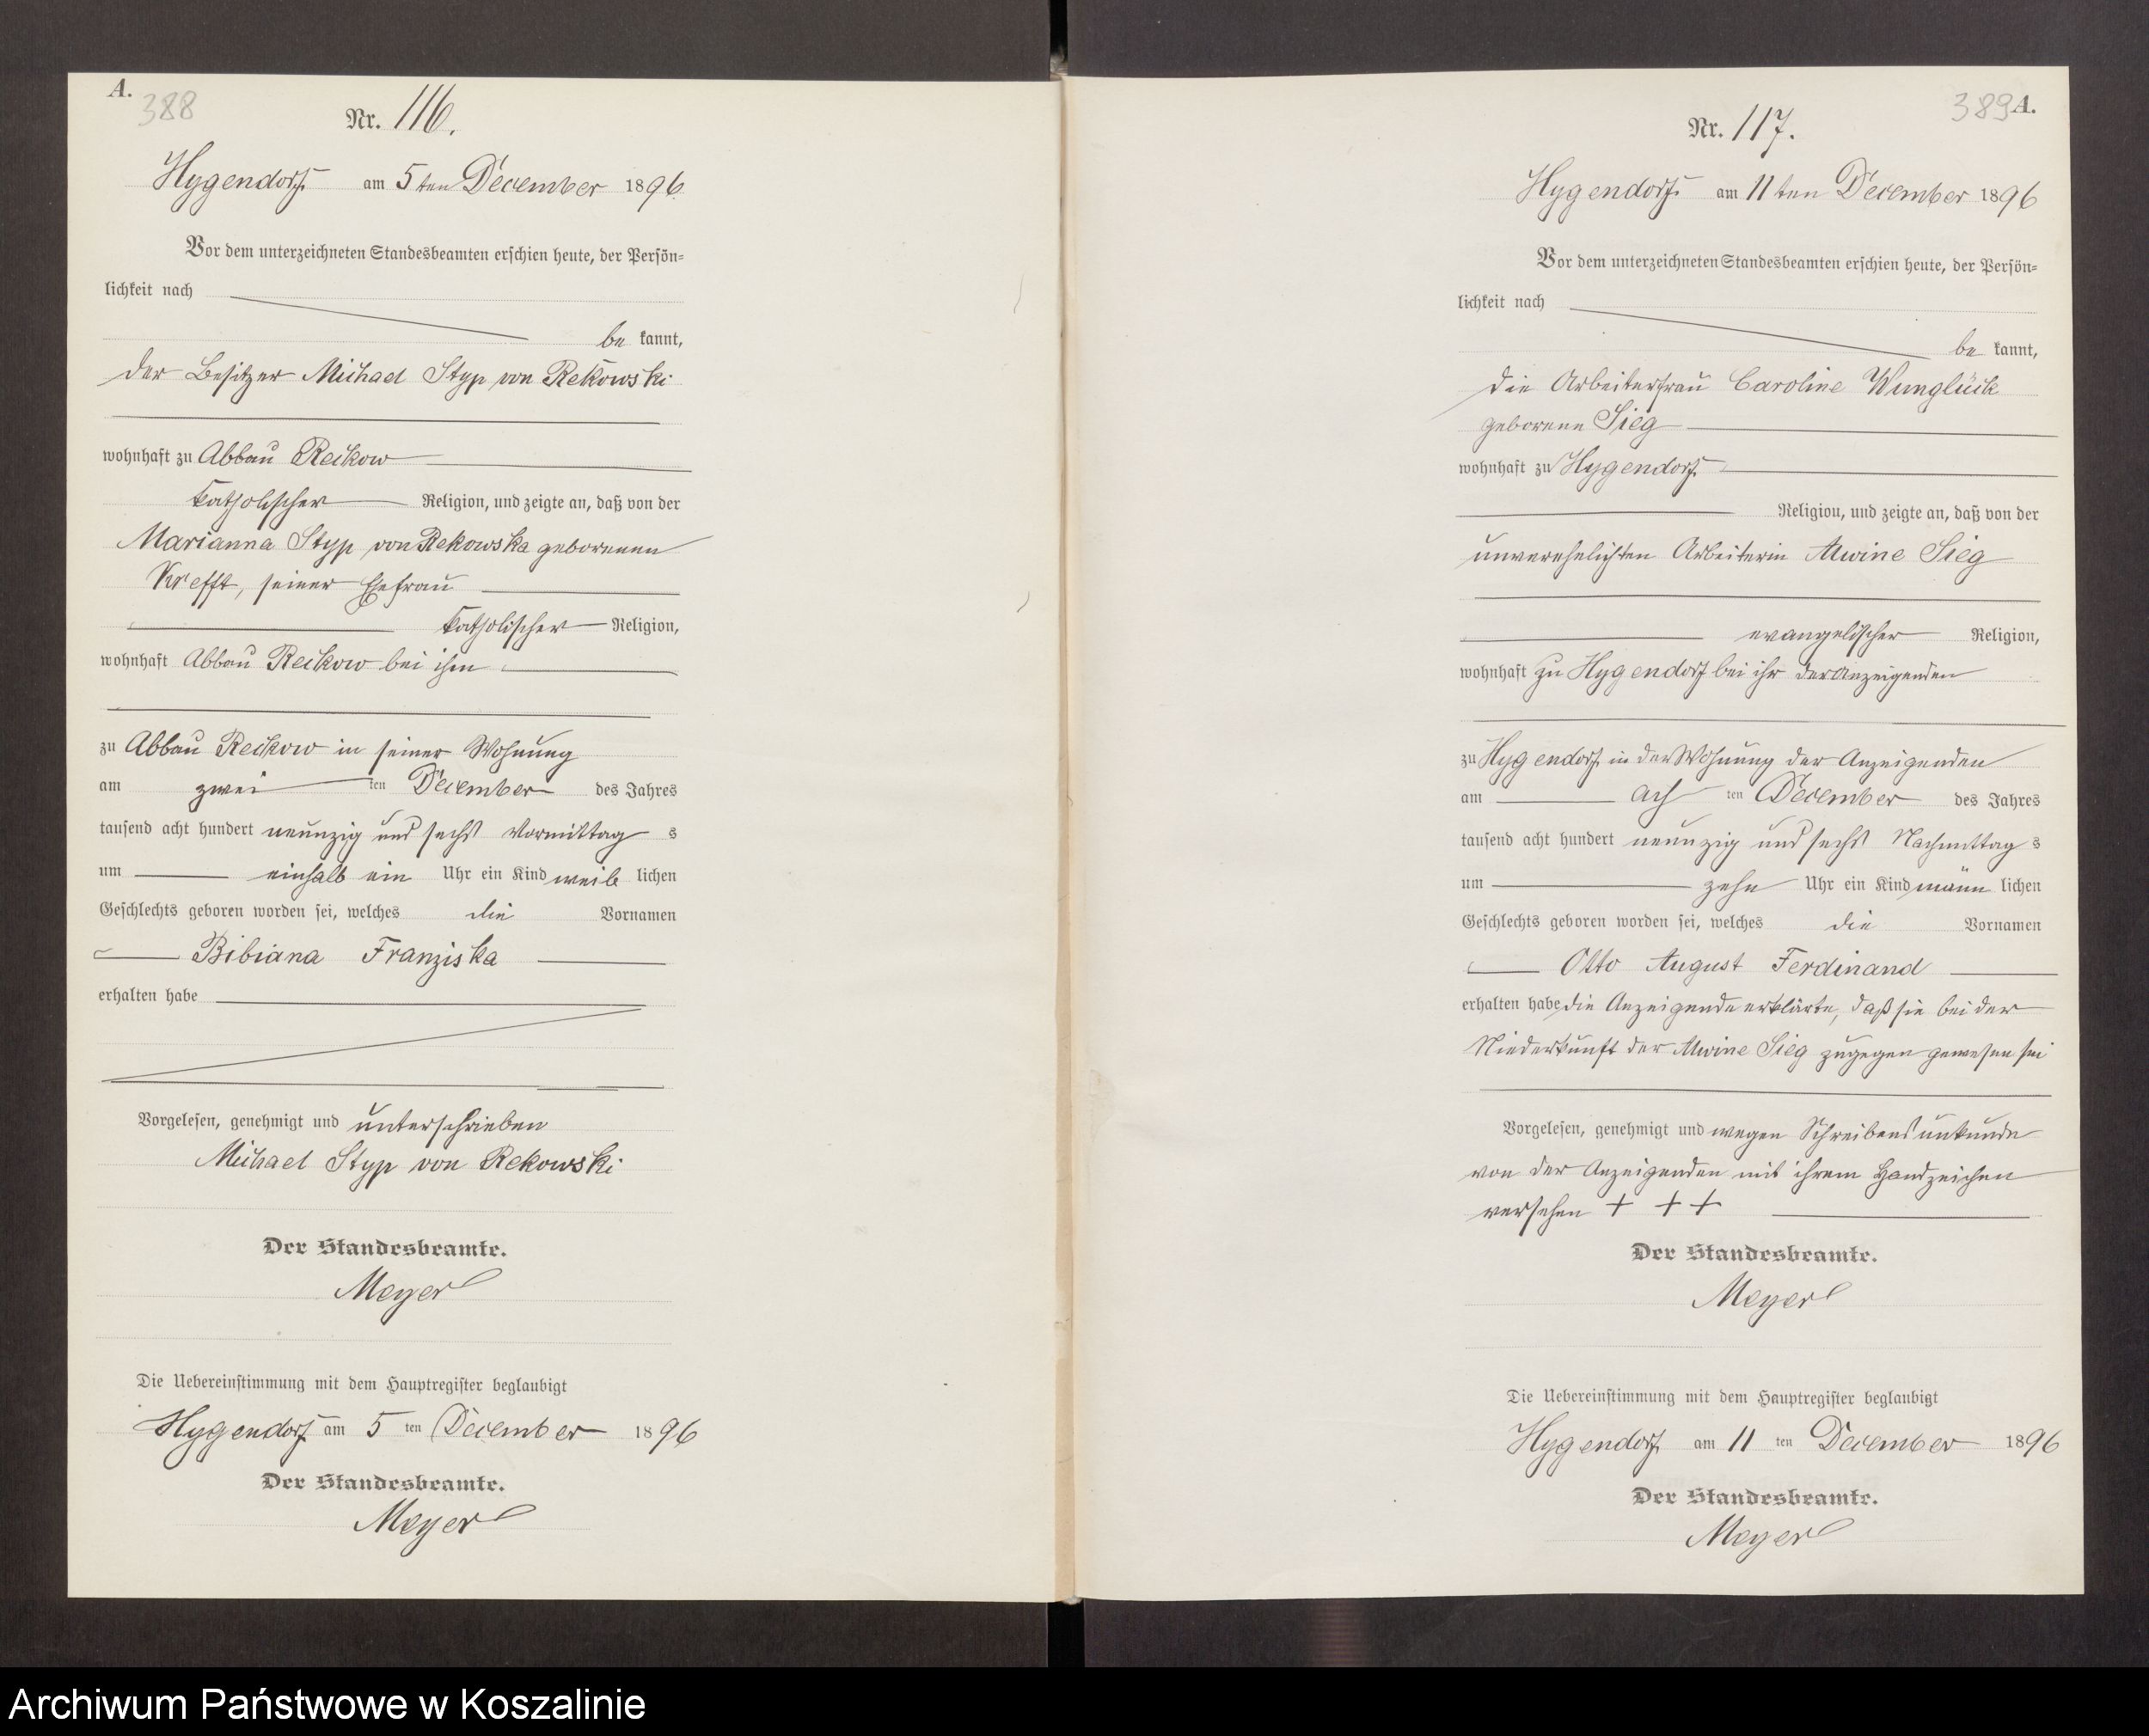 A.
388
Nr. 116.
Hygendorf am 5ten December 1896.
Vor dem unterzeichneten Standesbeamten erschien heute, der Persön-
lichkeit nach
be kannt,
der Besitzer Michael Styp von Rekowski
wohnhaft zu Abbau Reckow
katholischer Religion, und zeigte an, daß von der
Marianna Styp von Rekowska geborenen
Krefft, seiner Ehefrau
katholischer Religion,
wohnhaft Abbau Reckow bei ihm
zu Abbau Reckow in seiner Wohnung
am zwei ten December des Jahres
tausend acht hundert neunzig und sechs Vormittag s
um einhalb ein Uhr ein Kind weib lichen
Geschlechts geboren worden sei, welches die Vornamen
Bibiana Franziska
erhalten habe
Vorgelesen, genehmigt und unterschrieben
Michael Styp von Rekowski
Der Standesbeamte.
Meyer
Die Uebereinstimmung mit dem Hauptregister beglaubigt
Hygendorf am 5 ten December 1896
Der Standesbeamte.
Meyer
389 A.
Nr. 117.
Hygendorf am 11ten December 1896
Vor dem unterzeichneten Standesbeamten erschien heute, der Persön-
lichkeit nach
be kannt,
die Arbeiterfrau Caroline Wunglück
geborene Sieg
wohnhaft zu Hygendorf
Religion, und zeigte an, daß von der
unverehelichten Arbeiterin Alwine Sieg
evangelischer Religion,
wohnhaft zu Hygendorf bei ihr der Anzeigenden
zu Hygendorf in der Wohnung der Anzeigenden
am ach ten December des Jahres
tausend acht hundert neunzig und sechs Nachmittag s
um zehn Uhr ein Kind männ lichen
Geschlechts geboren worden sei, welches die Vornamen
Otto August Ferdinand
erhalten habe die Anzeigende erklärte, daß sie bei der
Niederkunft der Alwine Sieg zugegen gewesen sei
Vorgelesen, genehmigt und wegen Schreibensunkunde
von der Anzeigenden mit ihrem Handzeichen
versehen + + +
Der Standesbeamte.
Meyer
Die Uebereinstimmung mit dem Hauptregister beglaubigt
Hygendorf am 11 ten December 1896
Der Standesbeamte.
Meyer
Archiwum Państwowe w Koszalinie